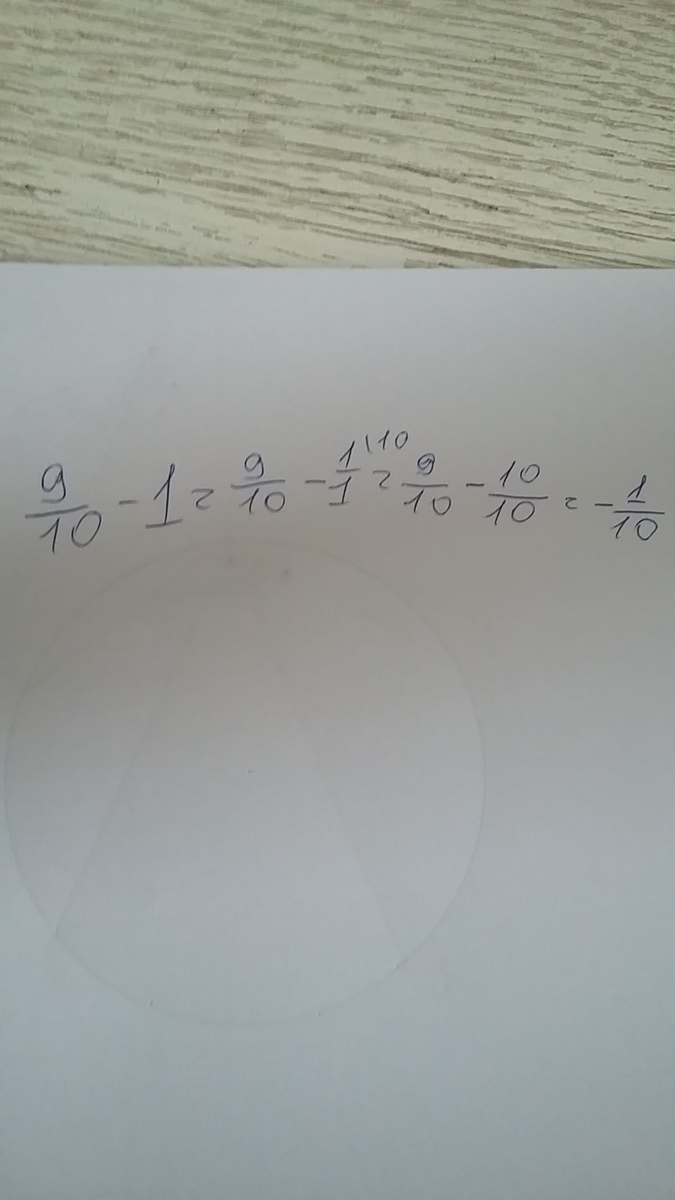 9/10 - 1 = 9/10 - 1/1 \10 = 9/10 - 10/10 = - 1/10